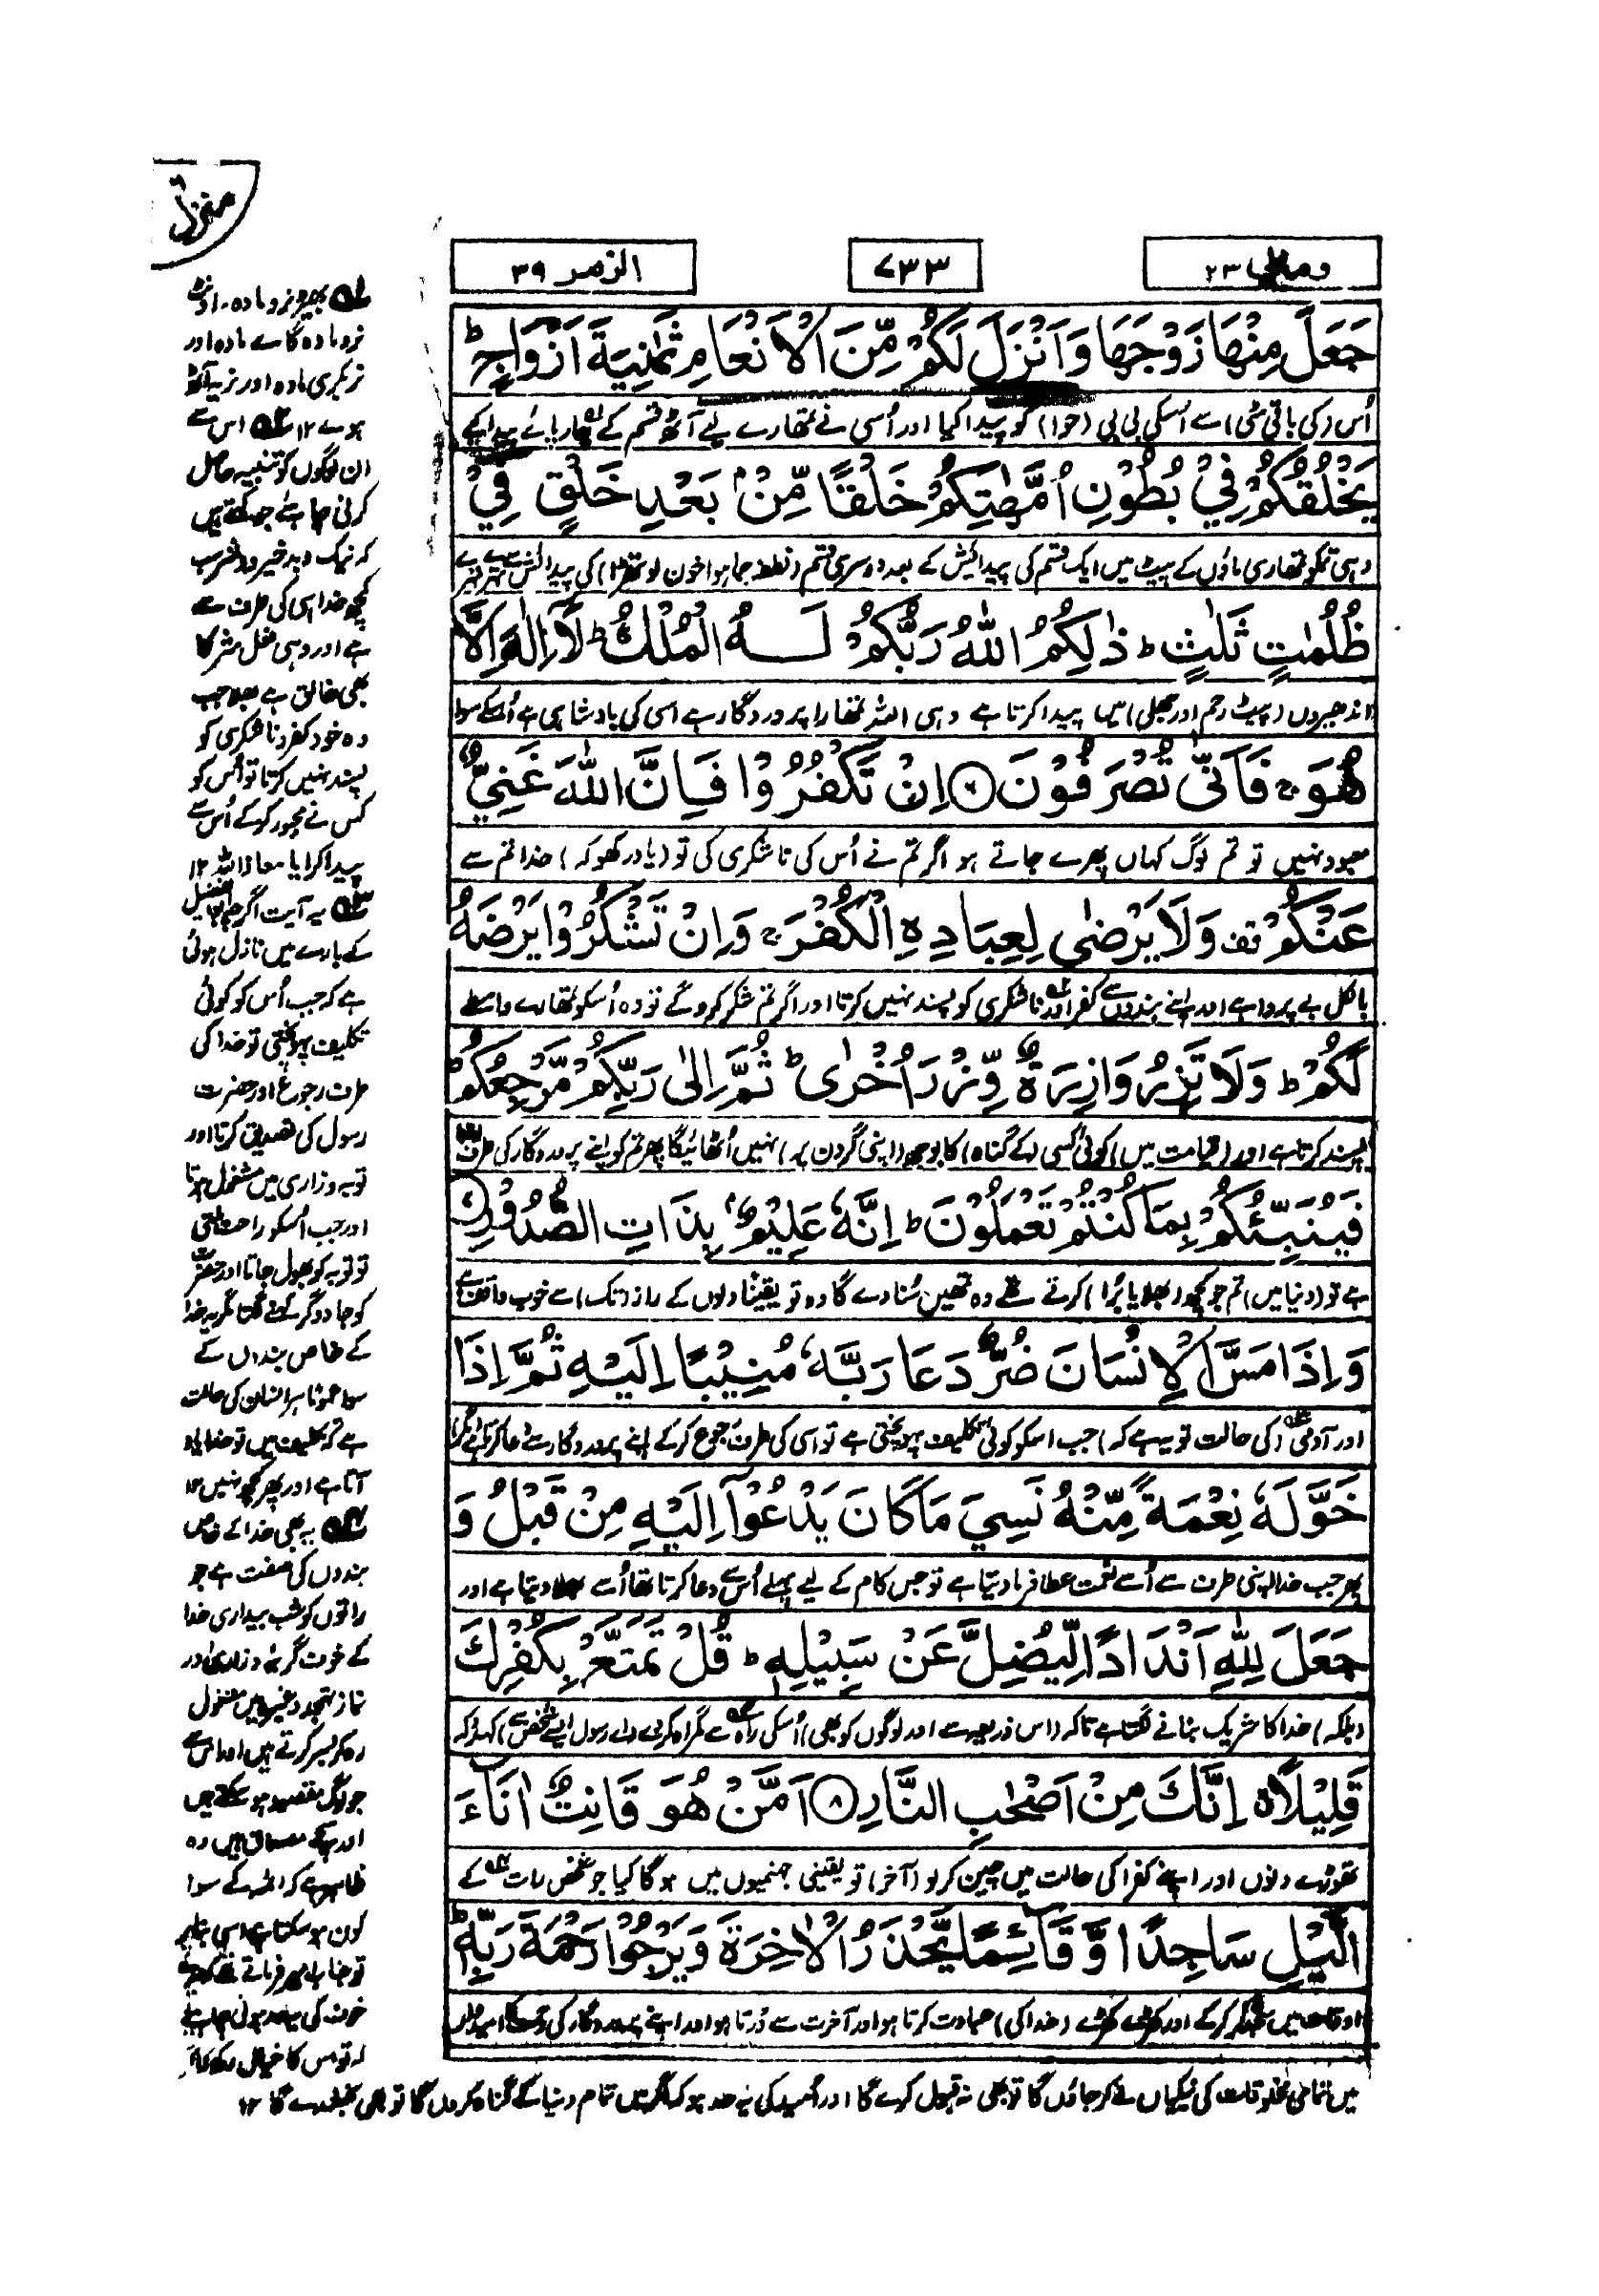 منزل ۶
ومالی ۲۳
۷۳۳
الزمر ۳۹
جَعَلَ مِنْهَا زَوْجَهَا وَاَنْزَلَ لَكُمْ مِّنَ الْاَنْعَامِ ثَمٰنِيَةَ اَزْوَاجٍ ؕ
اُس (کی باقی مٹی) سے اُسکی بی بی (حوا) کو پیدا کیا اور اُسی نے تمھارے لیے آٹھ قسم کے چارپائے پیدا کیے
يَخْلُقُكُمْ فِيْ بُطُوْنِ اُمَّهٰتِكُمْ خَلْقًا مِّنْۢ بَعْدِ خَلْقٍ فِيْ
وہی تمکو تمھاری ماؤں کے پیٹ میں ایک قسم کی پیدائش کے بعد دوسری قسم (نطفہ جما ہوا خون لوتھڑا) کی پیدائش سے
ظُلُمٰتٍ ثَلٰثٍ ؕ ذٰلِكُمُ اللّٰهُ رَبُّكُمْ لَهُ الْمُلْكُ ؕ لَاۤ اِلٰهَ اِلَّا
اندھیروں (پیٹ رحم اور جھلی) میں پیدا کرتا ہے وہی اللہ تمھارا پروردگار ہے اسی کی بادشاہی ہے اُسکے سوا
هُوَ ۚ فَاَنّٰى تُصْرَفُوْنَ ۶ اِنْ تَكْفُرُوْا فَاِنَّ اللّٰهَ غَنِيٌّ
معبود نہیں تو تم لوگ کہاں پھرے جاتے ہو اگر تم نے اُس کی ناشکری کی تو (یاد رکھو کہ) خدا تم سے
عَنْكُمْ قف وَلَا يَرْضٰى لِعِبَادِهِ الْكُفْرَ ۚ وَاِنْ تَشْكُرُوْا يَرْضَهُ
بالکل بے پروا ہے اور اپنے بندوں سے کفر اور ناشکری کو پسند نہیں کرتا اور اگر تم شکر کروگے تو وہ اُسکو تمھارے واسطے
لَكُمْ ؕ وَلَا تَزِرُ وَازِرَةٌ وِّزْرَ اُخْرٰى ؕ ثُمَّ اِلٰى رَبِّكُمْ مَّرْجِعُكُمْ
پسند کرتا ہے اور (قیامت میں) کوئی کسی (کے گناہ) کا بوجھ (اپنی گردن پر) نہیں اُٹھائیگا پھر تم کو اپنے پروردگار کی طرف
فَيُنَبِّئُكُمْ بِمَا كُنْتُمْ تَعْمَلُوْنَ ؕ اِنَّهٗ عَلِيْمٌۢ بِذَاتِ الصُّدُوْرِ ۷
ہے تو (دنیا میں) تم جو کچھ (بھلا یا بُرا) کرتے تھے وہ تمھیں بتا دے گا وہ تو یقیناً دلوں کے راز (تک) سے خوب واقف ہے
وَاِذَا مَسَّ الْاِنْسَانَ ضُرٌّ دَعَا رَبَّهٗ مُنِيْبًا اِلَيْهِ ثُمَّ اِذَا
اور آدمی (کی حالت تو یہ ہے کہ) جب اسکو کوئی تکلیف پہونچتی ہے تو اسی کی طرف رجوع کرکے اپنے پروردگار سے دعا کرتا ہے
خَوَّلَهٗ نِعْمَةً مِّنْهُ نَسِيَ مَا كَانَ يَدْعُوْۤا اِلَيْهِ مِنْ قَبْلُ وَ
پھر جب خدا اپنی طرف سے اُسے نعمت عطا فرما دیتا ہے تو جس کام کے لیے پہلے اُس سے دعا کرتا تھا اُسے بھلا دیتا ہے اور
جَعَلَ لِلّٰهِ اَنْدَادًا لِّيُضِلَّ عَنْ سَبِيْلِهٖ ؕ قُلْ تَمَتَّعْ بِكُفْرِكَ
(بلکہ) خدا کا شریک بنانے لگتا ہے تاکہ (اس ذریعہ سے اور لوگوں کو بھی) اُسکی راہ سے گمراہ کر دے (اے رسول ایسے شخص سے) کہدو کہ
قَلِيْلًا ۖ اِنَّكَ مِنْ اَصْحٰبِ النَّارِ ۸ اَمَّنْ هُوَ قَانِتٌ اٰنَآءَ
تھوڑے دنوں اور اپنے کفر کی حالت میں چین کرلو (آخر) تو یقینی جہنمیوں میں ہوگا کیا جو شخص رات کے
الَّيْلِ سَاجِدًا وَّقَآئِمًا يَّحْذَرُ الْاٰخِرَةَ وَيَرْجُوْا رَحْمَةَ رَبِّهٖ ؕ
اوقات میں سجدہ کرکے اور کھڑے کھڑے (خدا کی) عبادت کرتا ہو اور آخرت سے ڈرتا ہو اور اپنے پروردگار کی رحمت کا امیدوار
۱ بھیڑ نر و مادہ۔ اونٹ
نر و مادہ گائے مادہ اور
نر بکری مادہ اور نر یہ آٹھ
ہوے ۱۲ ۲ اس سے
ان لوگوں کو تنبیہ حاصل
کرنی چاہئے جو کہتے ہیں
کہ نیک و بد خیر و شر سب
کچھ خدا ہی کی طرف سے
ہے اور وہی فعل شر کا
بھی خالق ہے بھلا جب
وہ خود کفر و ناشکری کو
پسند نہیں کرتا تو اُس کو
کس نے مجبور کرکے اُس سے
پیدا کرایا معاذ اللہ ۱۲
۳ یہ آیت اگرچہ
کے بارے میں نازل ہوئی
ہے کہ جب اُس کو کوئی
تکلیف پہونچتی تو خدا کی
طرف رجوع اور حضرت
رسول کی تصدیق کرتا اور
توبہ و زاری میں مشغول ہوتا
اور جب اُسکو راحت ملتی
تو توبہ کو بھول جاتا اور حضرت
کو جادوگر کہنے لگتا مگر یہ خدا
کے خاص بندوں کے
سوا عموماً ہر انسان کی حالت
ہے کہ تکلیف میں تو خدا یاد
آتا ہے اور پھر کچھ نہیں ۱۲
۴ یہ بھی خدا کے خاص
بندوں کی صفت ہے جو
راتوں کو شب بیداری خدا
کے خوف گریہ و زاری اور
نماز تہجد وغیرہ میں مشغول
رہ کر بسر کرتے ہیں اور اس سے
جو لوگ مقصود ہو سکتے ہیں
اور اسکے مصداق ہیں وہ
ظاہر ہے کہ اللہ کے سوا
کون ہو سکتا ہے اسی بنا پر
تو جناب امیر فرماتے تھے کہ
خوف کی یہ حد ہونی چاہیے
میں تمامی مخلوقات کی نیکیاں لے کر جاؤں گا تو بھی نہ قبول کرے گا اور اُمید کی یہ حد ہو کہ اگر میں تمام دنیا کے گناہ کروں گا تو بھی بخشدے گا ۱۲